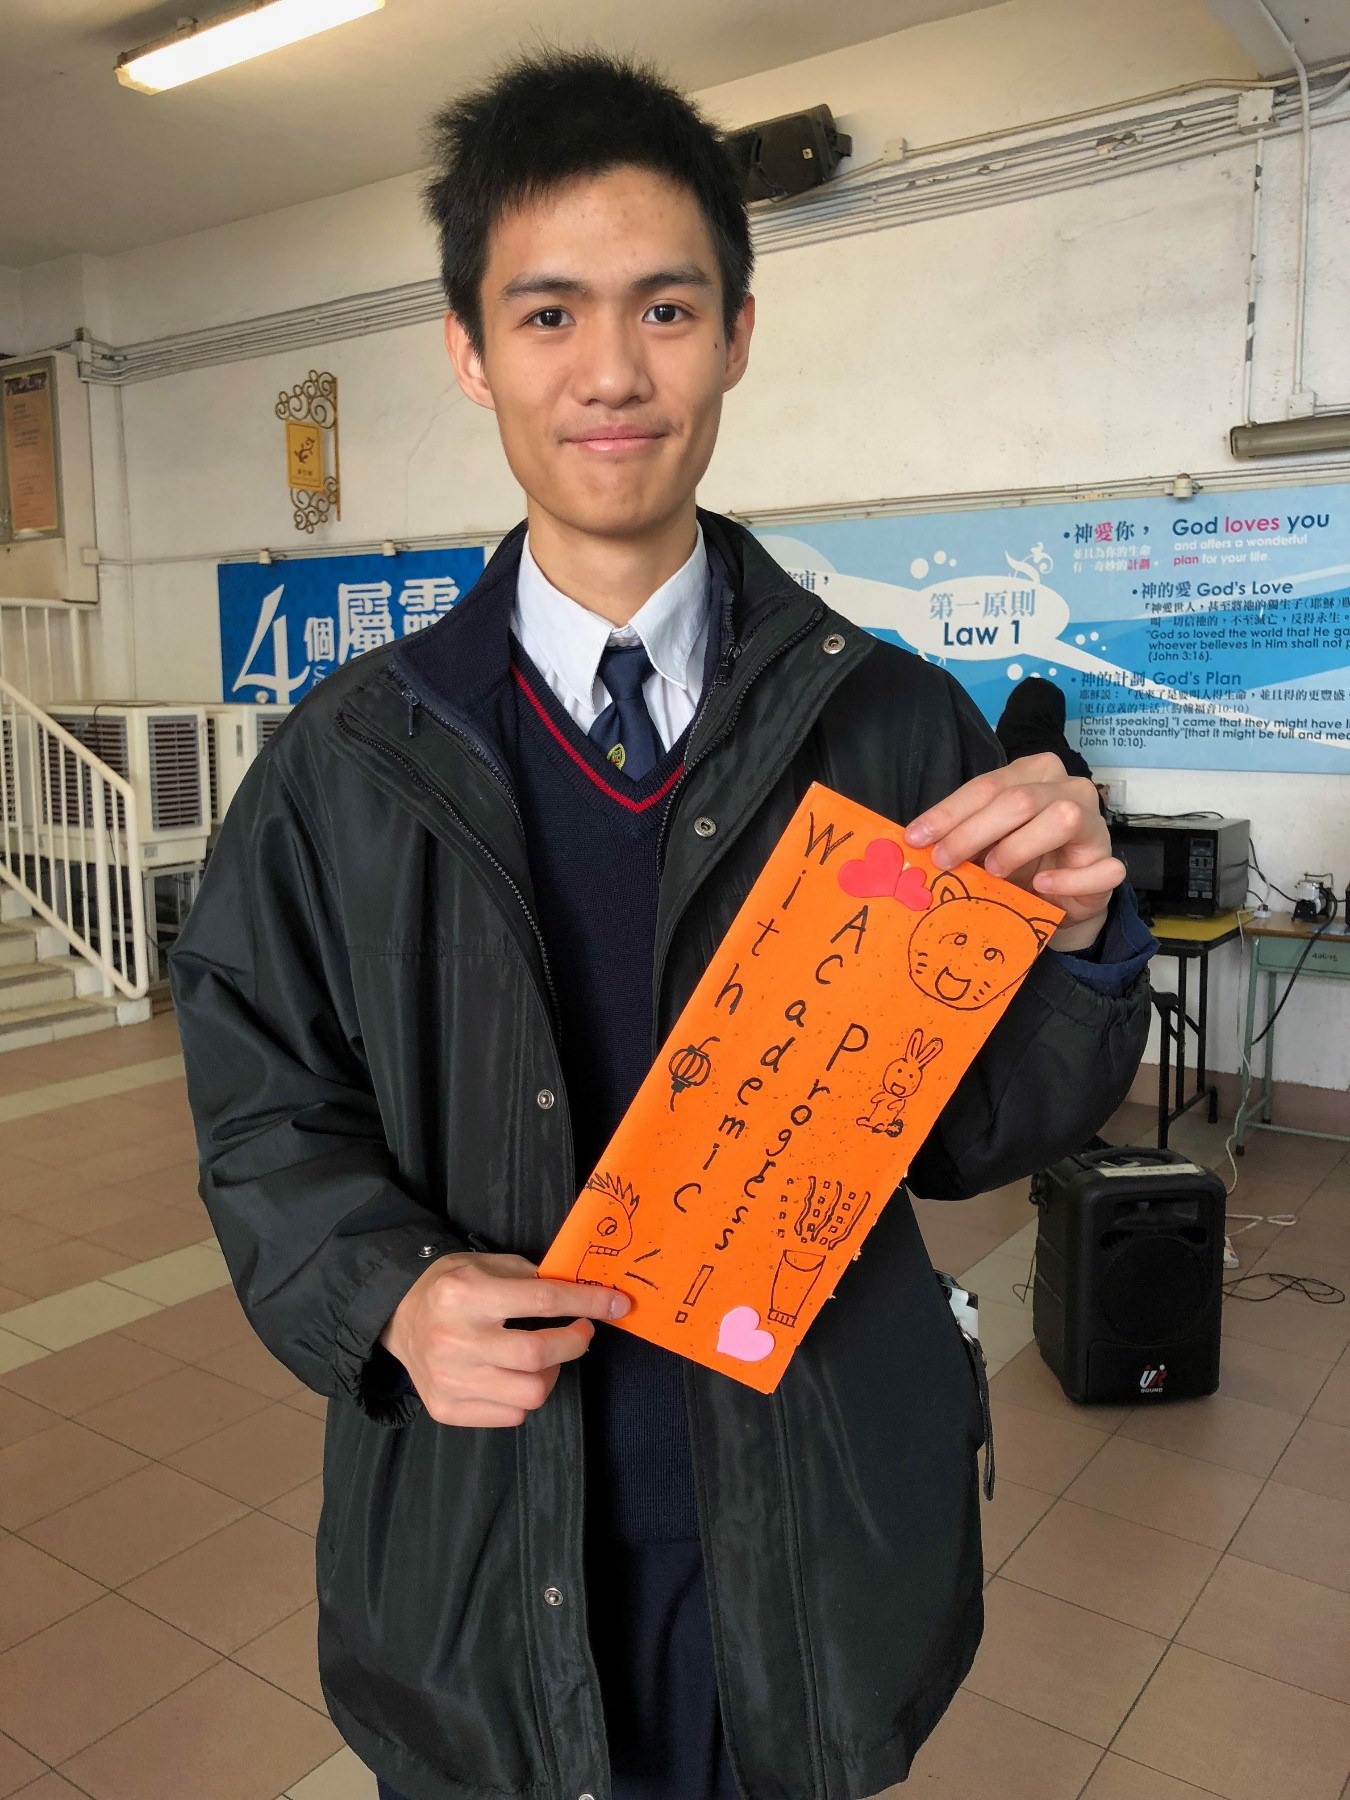 With
Academic
Progress!
4個屬靈
第一原則
Law 1
•神愛你，
並且為你的生命
有一奇妙的計劃。
God loves you
and offers a wonderful
plan for your life.
•神的愛 God's Love
「神愛世人，甚至將祂的獨生子（耶穌）賜
叫一切信祂的，不至滅亡，反得永生。
"God so loved the world that He ga
whoever believes in Him shall not p
(John 3:16).
•神的計劃 God's Plan
耶穌說：「我來了是要叫人得生命，並且得的更豐盛。
［更有意義的生活］（約翰福音10:10）
[Christ speaking] "I came that they might have li
have it abundantly"[that it might be full and mea
(John 10:10).
SOUND